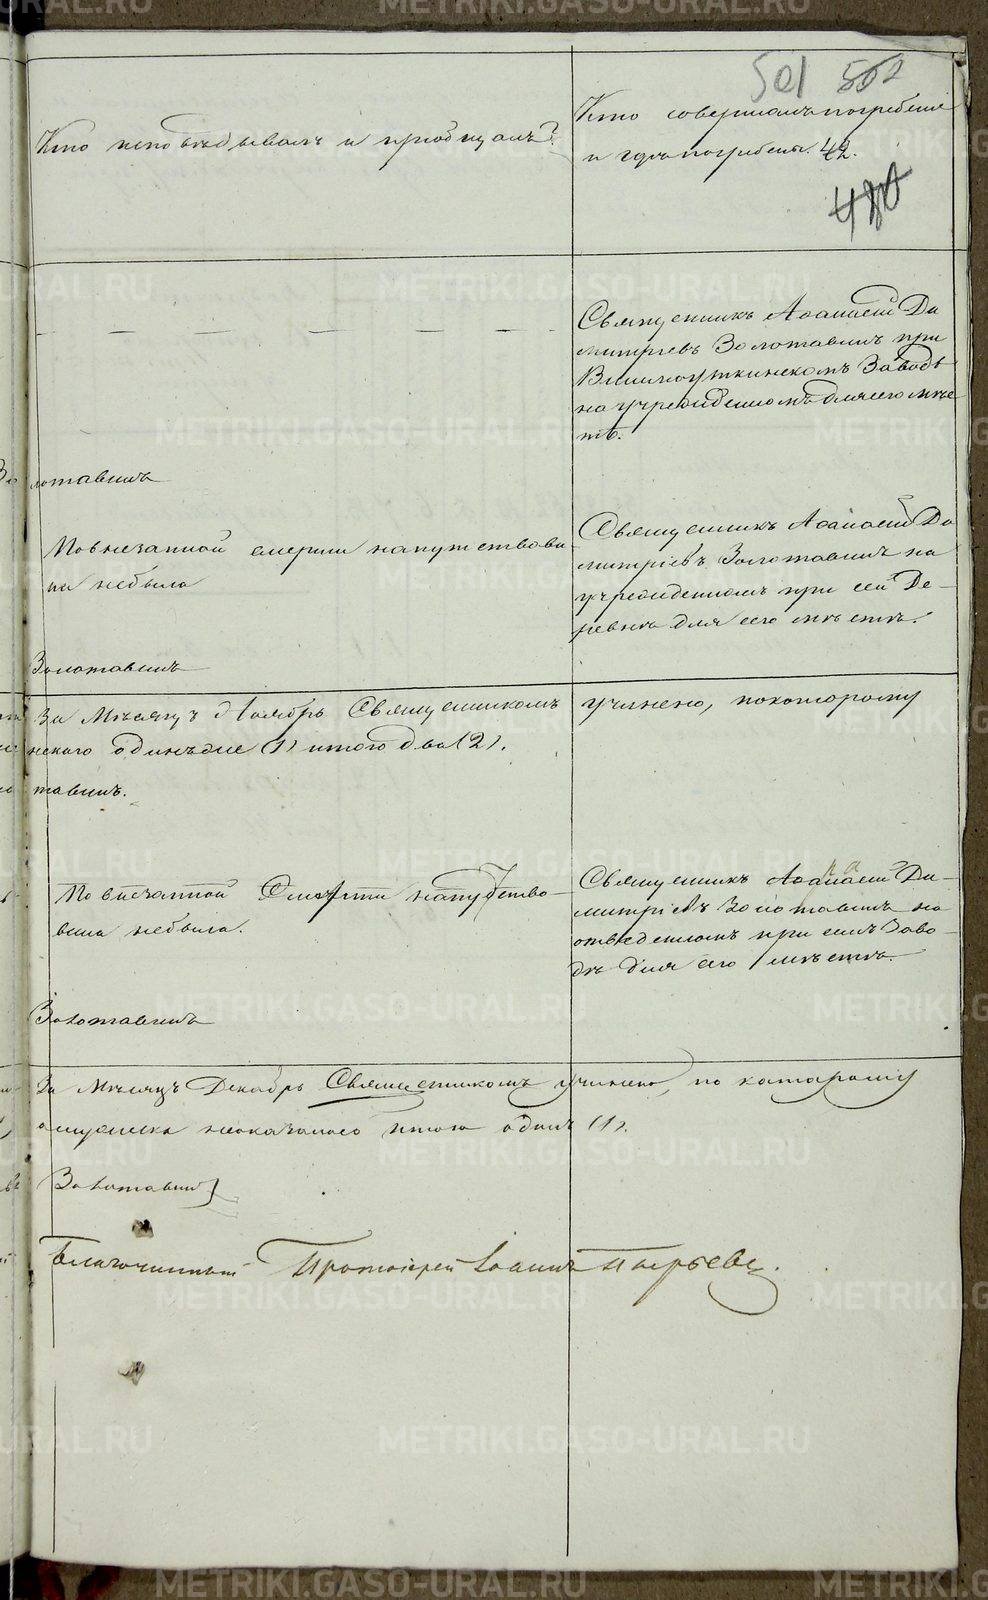 501 502
Кто исповѣдывалъ и пріобщалъ?
Кто совершалъ погребеніе
и гдѣ погребены. 42.
480
Священникъ Аѳанасій Ди
митріевъ Золотавинъ при
Висимоуткинскомъ Заводѣ
на учрежденномъ для сего мѣс
тѣ.
лотавинъ
По внезапной смерти напутствова
на небыла
Священникъ Аѳанасій Ди
митріевъ Золотавинъ на
учрежденномъ при сей Де-
ревнѣ для сего мѣстѣ.
Золотавинъ
За Мѣсяцъ Ноябрь Священникомъ учинено, покоторому
нскаго одинъ же (1) итого два (2).
тавинъ.
По внезапной Смерти напутство-
вана небыла.
Священникъ Аѳанасій Ди-
митріевъ Золотавинъ на
отведенномъ при семъ Заво-
дѣ для сего мѣстѣ.
Золотавинъ
За Мѣсяцъ Декабрь Священникомъ учинено, по которому
неоказалось Итого одинъ (1).
Золотавинъ
Благочинный Протоіерей Іоаннъ
METRIKI.GASO-URAL.RU